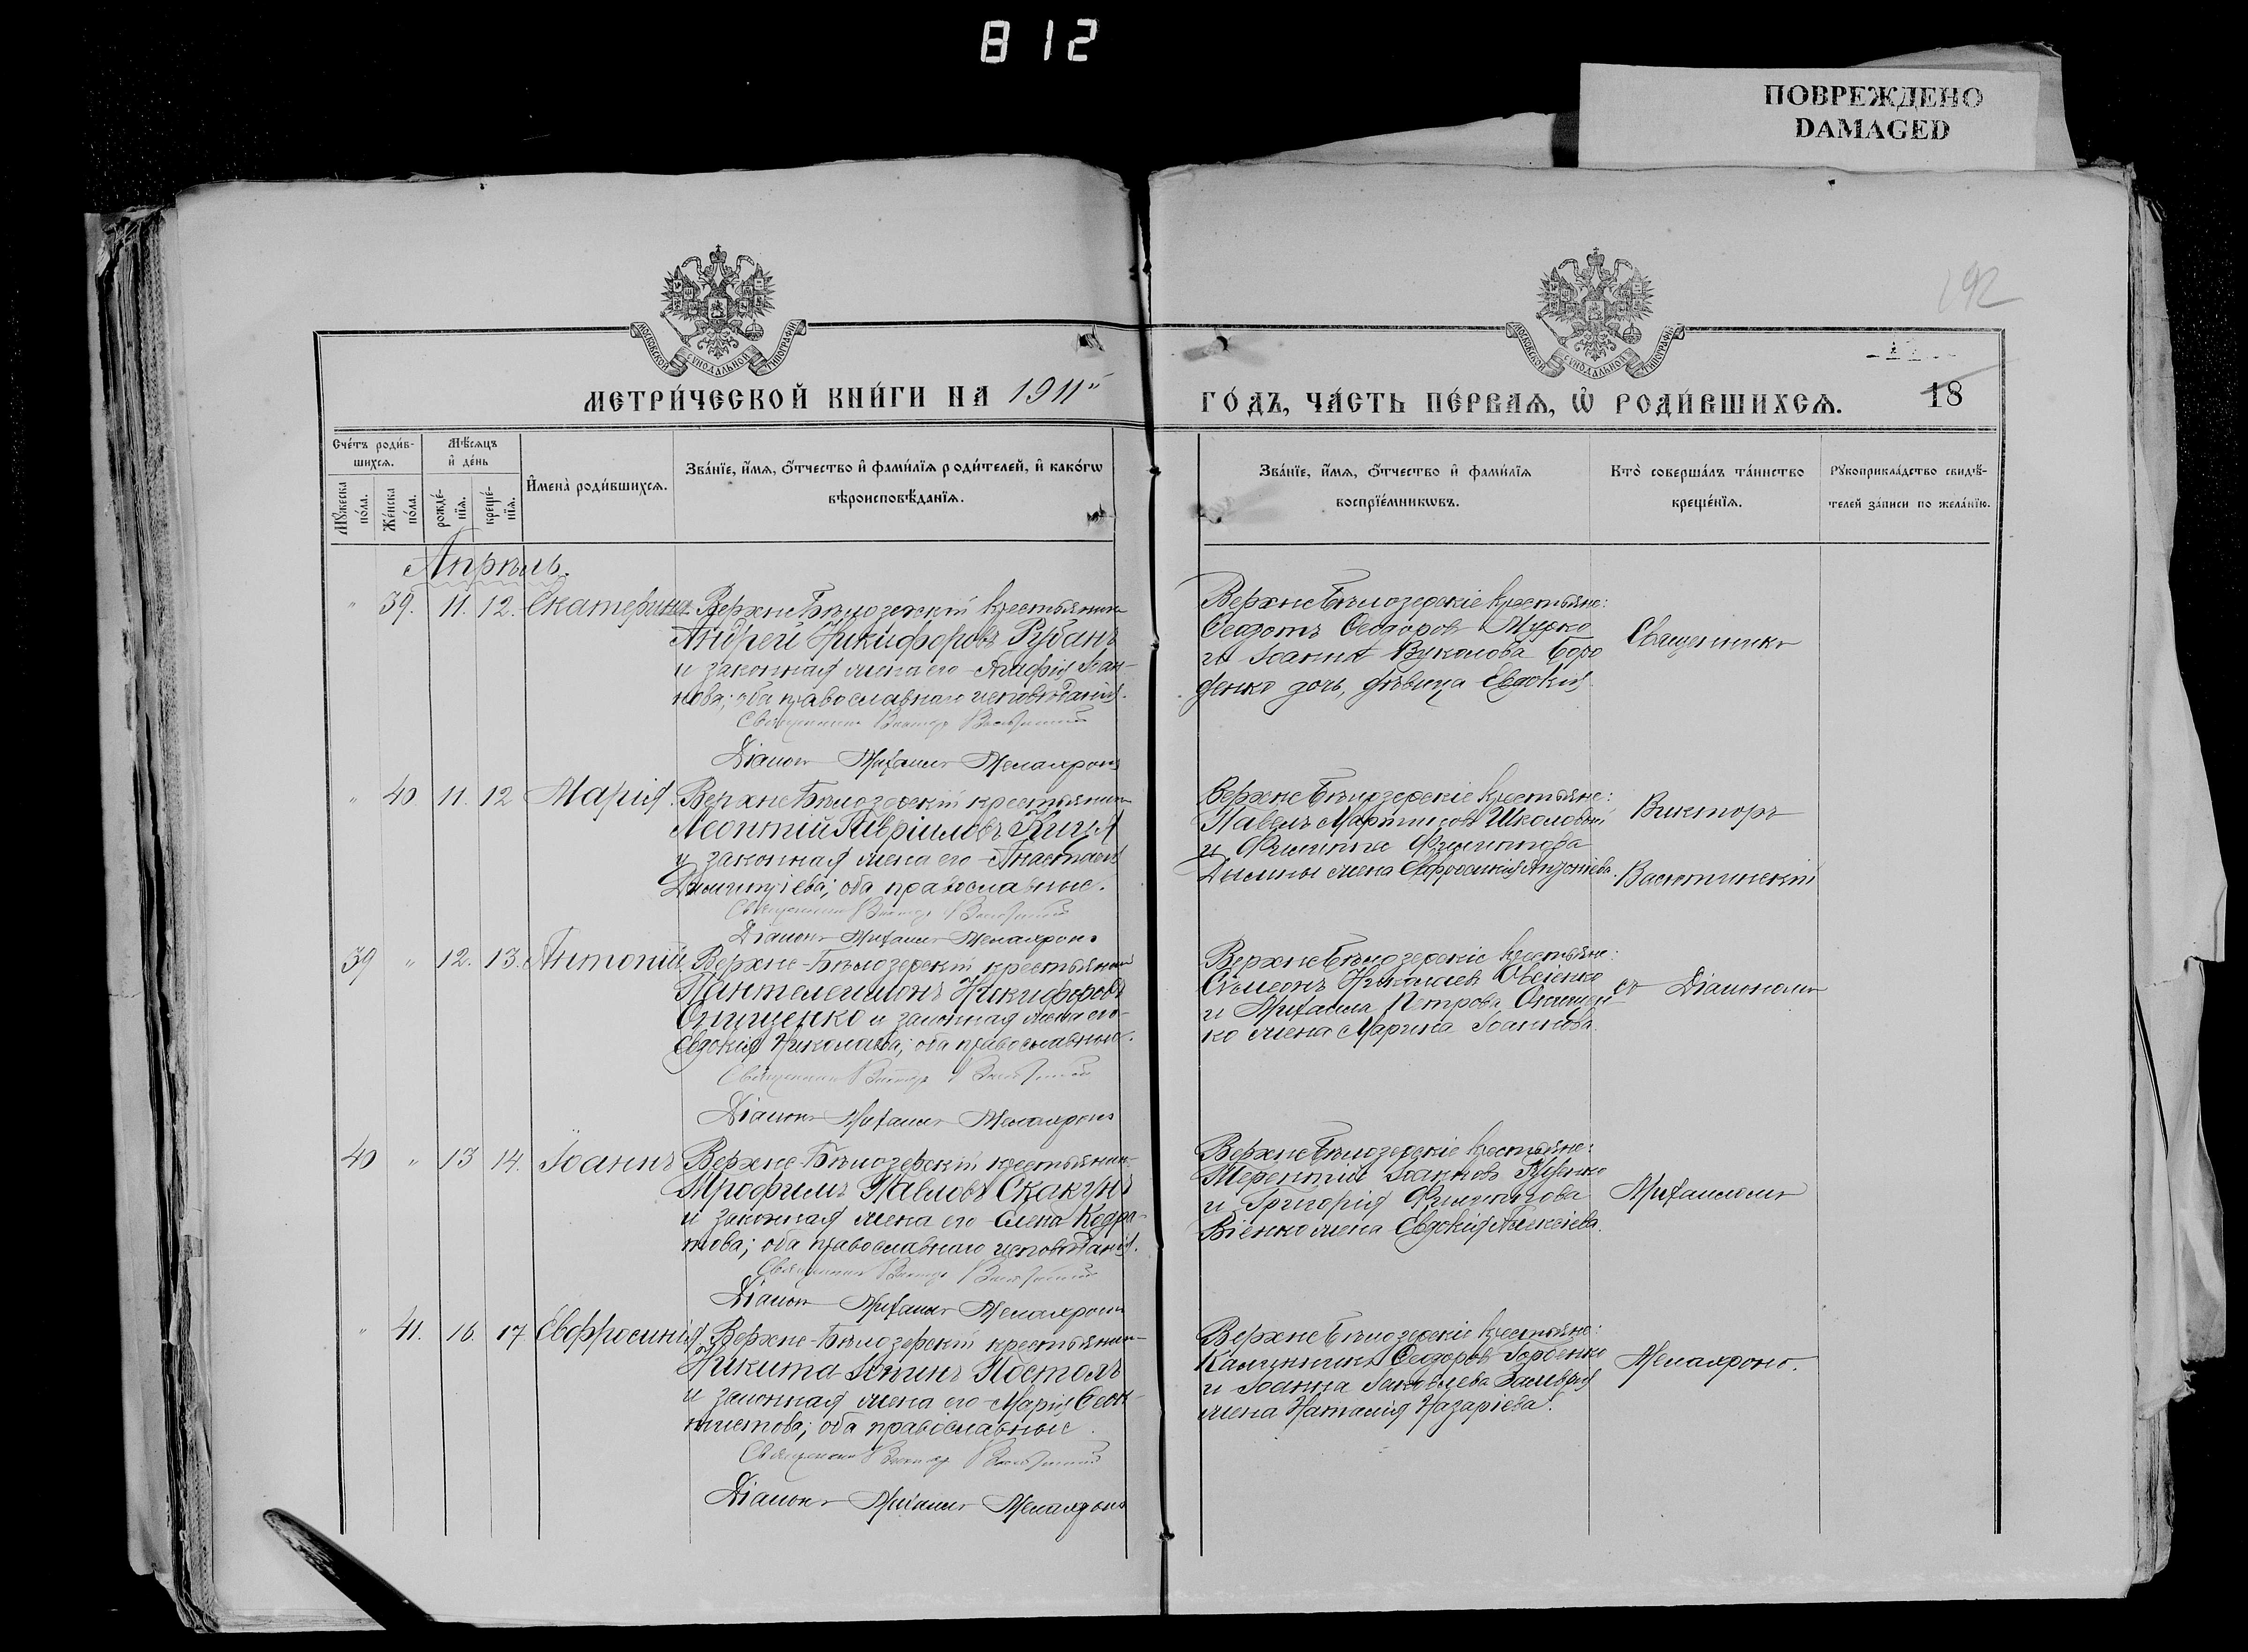 812
ПОВРЕЖДЕНО
DAMAGED
192
МОСКОВСКОЙ СѴНОДАЛЬНОЙ ТИПОГРАФІИ
МОСКОВСКОЙ СѴНОДАЛЬНОЙ ТИПОГРАФІИ
МЕТРИ́ЧЕСКОЙ КНИ́ГИ НА 1911
ГО́ДЪ, ЧА́СТЬ ПЕ́РВАѦ, Ѽ РОДИ́ВШИХСѦ.
18
Сче́тъ роди́в-
шихсѧ.
Мѣ́сѧцъ
и҆ де́нь
Мꙋ́жеска по́ла.
Же́нска по́ла.
рожде́-
нїѧ.
креще́-
нїѧ.
И҆мена̀ роди́вшихсѧ.
Зва́нїе, и҆́мѧ, ѻ҆́тчество и҆ фами́лїѧ роди́телей, и҆ како́гѡ
вѣроисповѣ́данїѧ.
Зва́нїе, и҆́мѧ, ѻ҆́тчество и҆ фами́лїѧ
воспрїе́мникѡвъ.
Кто̀ соверша́лъ та́инство
креще́нїѧ.
Рꙋкоприкла́дство свидѣ́-
телей за́писи по жела́нїю.
Апрѣль.
" 39. 11. 12. Екатерина. Верхне Бѣлозерскій крестьянинъ
Андрей Никифоровъ Рубанъ
и законная жена его Агафія Іоан-
нова; оба православнаго исповѣданія.
Священникъ Викторъ Васютинскій
Діаконъ Михаилъ Желахроно
Верхне Бѣлозерскіе крестьяне:
Ѳеодотъ Ѳеодоровъ
и Іоанна Вуколова Боро
денко дочь, дѣвица Евдокія.
Священникъ
" 40 11. 12 Марія. Верхне Бѣлозерскій крестьянинъ
Леонтій Гавріиловъ Кица
и законная жена его Анастасія
Димитріева; оба православные.
Священникъ Викторъ Васютинскій
Діаконъ Михаилъ
Верхне Бѣлозерскіе крестьяне:
Павелъ Мартиновъ Школовый
и Филиппа Филиппова
Дымны жена Евфросинія Антоніева.
Викторъ
Васютинскій
39 " 12. 13. Антоній. Верхне-Бѣлозерскій крестьянинъ
Пантелеимонъ Никифоровъ
Онищенко и законная жена его
Евдокія Николаева; оба православные.
Священникъ Викторъ Васютинскій
Діаконъ Михаилъ
Верхне Бѣлозерскіе крестьяне:
Симеонъ Николаевъ Овсіенко
и Михаила Петрова Онищен
ко жена Марина Іоаннова.
съ Діакономъ
40 " 13 14. Іоаннъ Верхне-Бѣлозерскій крестьянинъ
Трофимъ Павловъ Скакунъ
и законная жена его Елена Кодра-
това; оба православнаго исповѣданія.
Священникъ Викторъ Васютинскій
Діаконъ Михаилъ
Верхне Бѣлозерскіе крестьяне:
Терентій Іоанновъ
и Григорія Филиппова
Віенко жена Евдокія Алексіева.
Михаиломъ
" 41. 16. 17 Евфросинія. Верхне-Бѣлозерскій крестьянинъ
Никита Постолъ
и законная жена его Марія Ѳеок-
тистова; оба православные.
Священникъ Викторъ Васютинскій
Діаконъ Михаилъ
Верхне Бѣлозерскіе крестьяне:
Калинникъ Ѳеодоровъ Горбенко
и Іоанна Іаковлева
жена Наталія Назаріева.